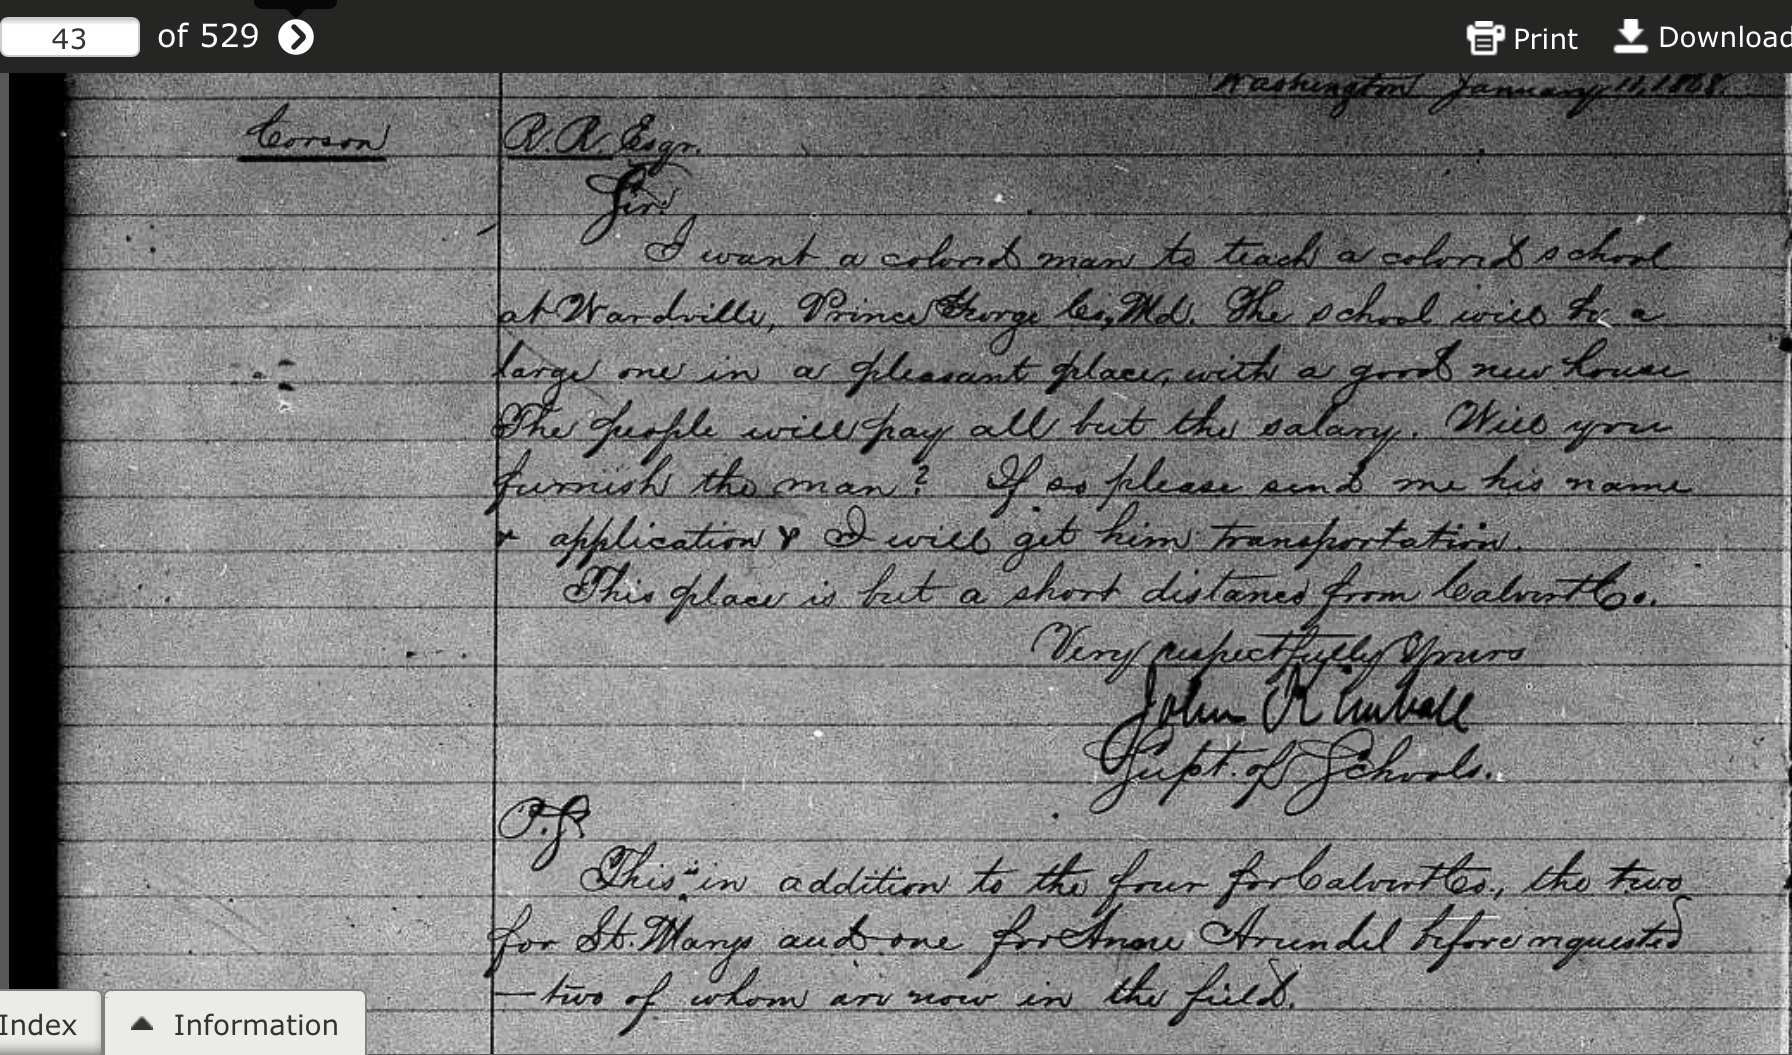 43 of 529 Print Download
Washington January 11, 1868.
Corson R. R. Esqr.
Sir.
I want a colored man to teach a colored school
at Wardville, Prince George Co, Md. The school will be a
large one in a pleasant place, with a good new house
The people will pay all but the salary. Will you
furnish the man? If so please send me his name
& application & I will get him transportation.
This place is but a short distance from Calvert Co.
Very respectfully Yours
John Kimball
Supt. of Schools.
P.S.
This in addition to the four for Calvert Co., the two
for St. Marys and one for Anne Arundel before requested
— two of whom are now in the field.
Index Information